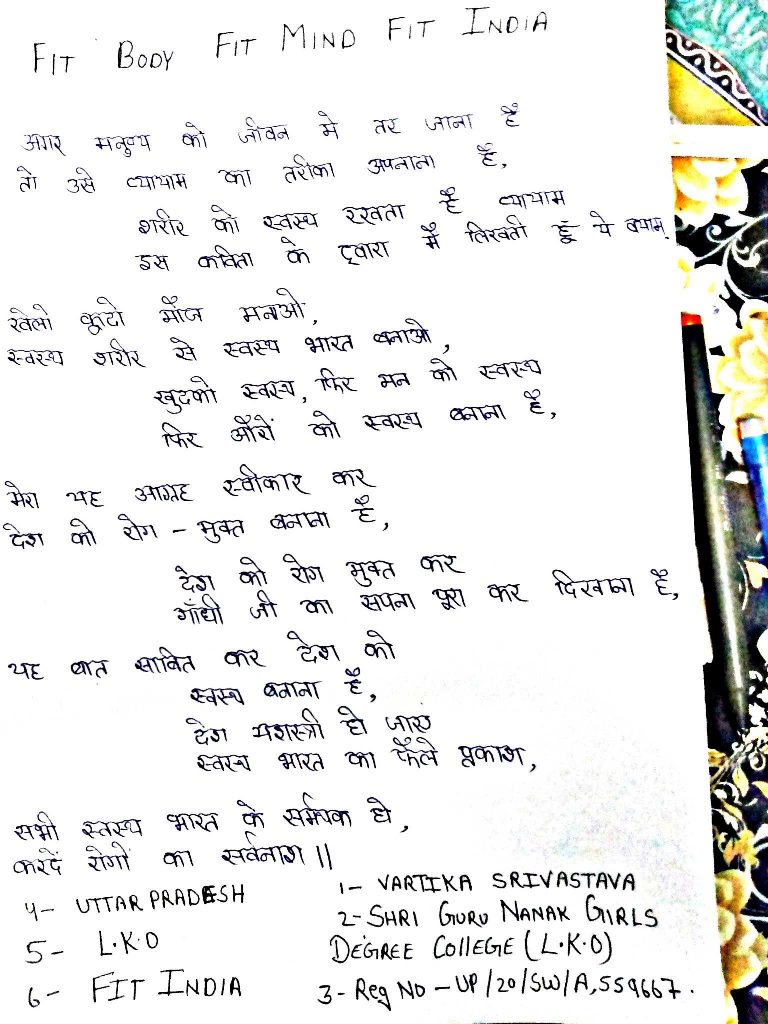 FIT BODY FIT MIND FIT INDIA
अगर मनुष्य को जीवन मे तर जाना है
तो उसे व्यायाम का तरीका अपनाना है,
शरीर को स्वस्थ रखता है व्यायाम
इस कविता के द्वारा मैं लिखती हूँ ये बयाम्
खेलो कूदो मौज मनाओ,
स्वस्थ शरीर से स्वस्थ भारत बनाओ,
खुदको स्वस्थ, फिर मन को स्वस्थ
फिर औरों को स्वस्थ बनाना है,
मेरा यह आग्रह स्वीकार कर
देश को रोग - मुक्त बनाना है,
देश को रोग मुक्त कर
गाँधी जी का सपना पूरा कर दिखाना है,
यह बात साबित कर देश को
स्वस्थ बनाना है,
देश यशस्त्री हो जाए
स्वस्थ भारत का फैले प्रकाश,
सभी स्वस्थ भारत के सर्मथक हो,
करदें रोगों का सर्वनाश ||
1- VARTIKA SRIVASTAVA
2- SHRI GURU NANAK GIRLS
DEGREE COllEGE (L.K.O)
3- Reg NO - UP/20/SW/A,559667.
4- UTTAR PRADESH
5- L.K.O
6- FIT INDIA